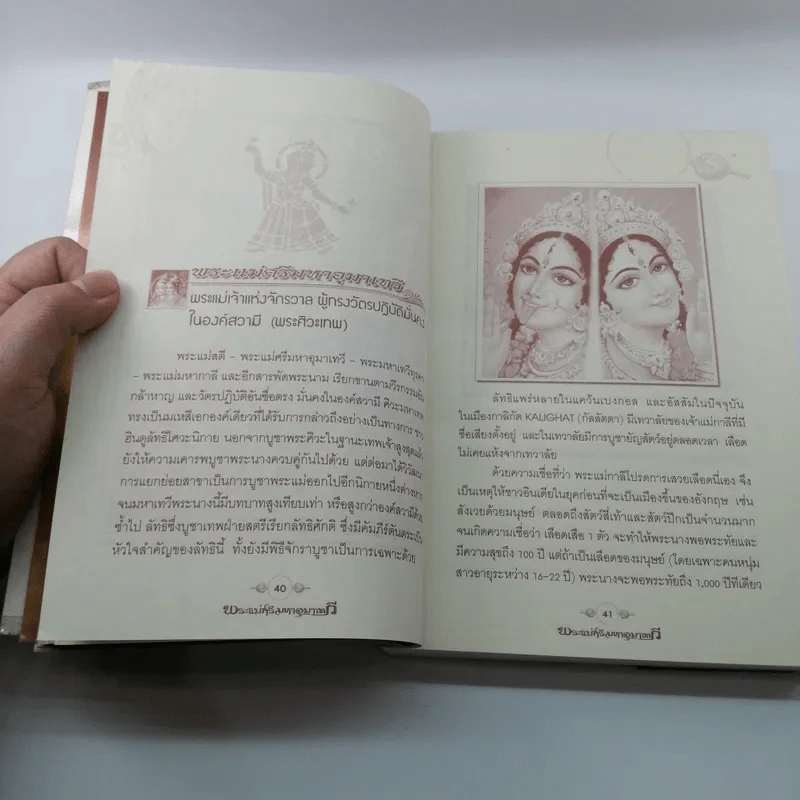 พระแม่ศรีมหาอุมาเทวี
พระแม่เจ้าแห่งจักรวาล ผู้ทรงวัตรปฏิบัติมั่นคง
ในองค์สวามี (พระศิวะเทพ)
พระแม่สตี – พระแม่ศรีมหาอุมาเทวี – พระมหาเทวีทุรคา
– พระแม่มหากาลี และอีกสารพัดพระนาม เรียกขานตามวีรกรรมอัน
กล้าหาญ และวัตรปฏิบัติอันซื่อตรง มั่นคงในองค์สวามี ศิวะมหาเทพ
ทรงเป็นมเหสีเอกองค์เดียวที่ได้รับการกล่าวถึงอย่างเป็นทางการ ชาว
ฮินดูลัทธิไศวะนิกาย นอกจากบูชาพระศิวะในฐานะเทพเจ้าสูงสุดแล้ว
ยังให้ความเคารพบูชาพระนางควบคู่กันไปด้วย แต่ต่อมาได้วิวัฒ
การแยกย่อยสาขาเป็นการบูชาพระแม่ออกไปอีกนิกายหนึ่งต่างหาก
จนมหาเทวีพระนางนี้มีบทบาทสูงเทียบเท่า หรือสูงกว่าองค์สวามีด้วย
ซ้ำไป ลัทธิซึ่งบูชาเทพฝ่ายสตรีเรียกลัทธิศักติ ซึ่งมีคัมภีร์ตันตระเป็น
หัวใจสำคัญของลัทธินี้ ทั้งยังมีพิธีจักราบูชาเป็นการเฉพาะด้วย
40
พระแม่ศรีมหาอุมาเทวี
ลัทธิแพร่หลายในแคว้นเบงกอล และอัสสัมในปัจจุบัน
ในเมืองกาลีกัต KALIGHAT (กัลลัตตา) มีเทวาลัยของเจ้าแม่กาลีที่มี
ชื่อเสียงตั้งอยู่ และในเทวาลัยมีการบูชายัญสัตว์อยู่ตลอดเวลา เลือด
ไม่เคยแห้งจากเทวาลัย
ด้วยความเชื่อที่ว่า พระแม่กาลีโปรดการเสวยเลือดนี่เอง จึง
เป็นเหตุให้ชาวอินเดียในยุคก่อนที่จะเป็นเมืองขึ้นของอังกฤษ เซ่น
สังเวยด้วยมนุษย์ ตลอดถึงสัตว์สี่เท้าและสัตว์ปีกเป็นจำนวนมาก
จนเกิดความเชื่อว่า เลือดเสือ 1 ตัว จะทำให้พระนางพอพระทัยและ
มีความสุขถึง 100 ปี แต่ถ้าเป็นเลือดของมนุษย์ (โดยเฉพาะคนหนุ่ม
สาวอายุระหว่าง 16–22 ปี) พระนางจะพอพระทัยถึง 1,000 ปีทีเดียว
41
พระแม่ศรีมหาอุมาเทวี